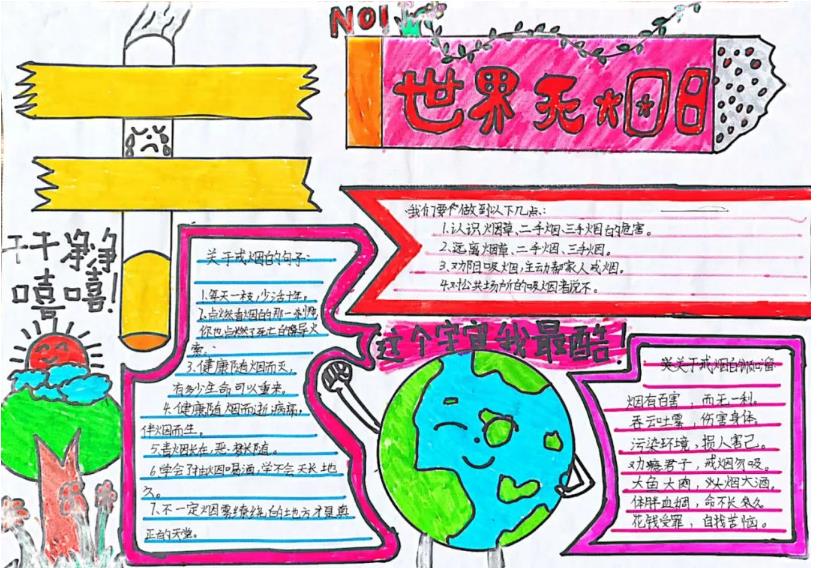 NO!
世界无烟日
我们要做到以下几点:
1.认识烟草、二手烟、三手烟的危害。
2.远离烟草、二手烟、三手烟。
3.劝阻吸烟,主动帮家人戒烟。
4.对公共场所的吸烟者说不。
干干净净
嘻嘻!
关于戒烟的句子:
1.每天一枝,少活十年。
2.点燃香烟的那一刹
你也点燃了死亡的导火
索。
3.健康随烟而灭,
有多少生命可以重来。
4.健康随烟而逝,病痛
伴烟而生。
5.青烟长在,悲愁长随。
6.学会了抽烟喝酒,学不会天长地
久。
7.不一定烟雾缭绕的地方才是真
正的天堂。
这个宇宙我最酷!
关于戒烟的顺口溜
烟有百害,而无一利。
吞云吐雾,伤害身体。
污染环境,损人害己。
劝瘾君子,戒烟勿吸。
大鱼大肉,烟大酒。
体胖血稠,命不长久。
花钱受罪,自找苦恼。